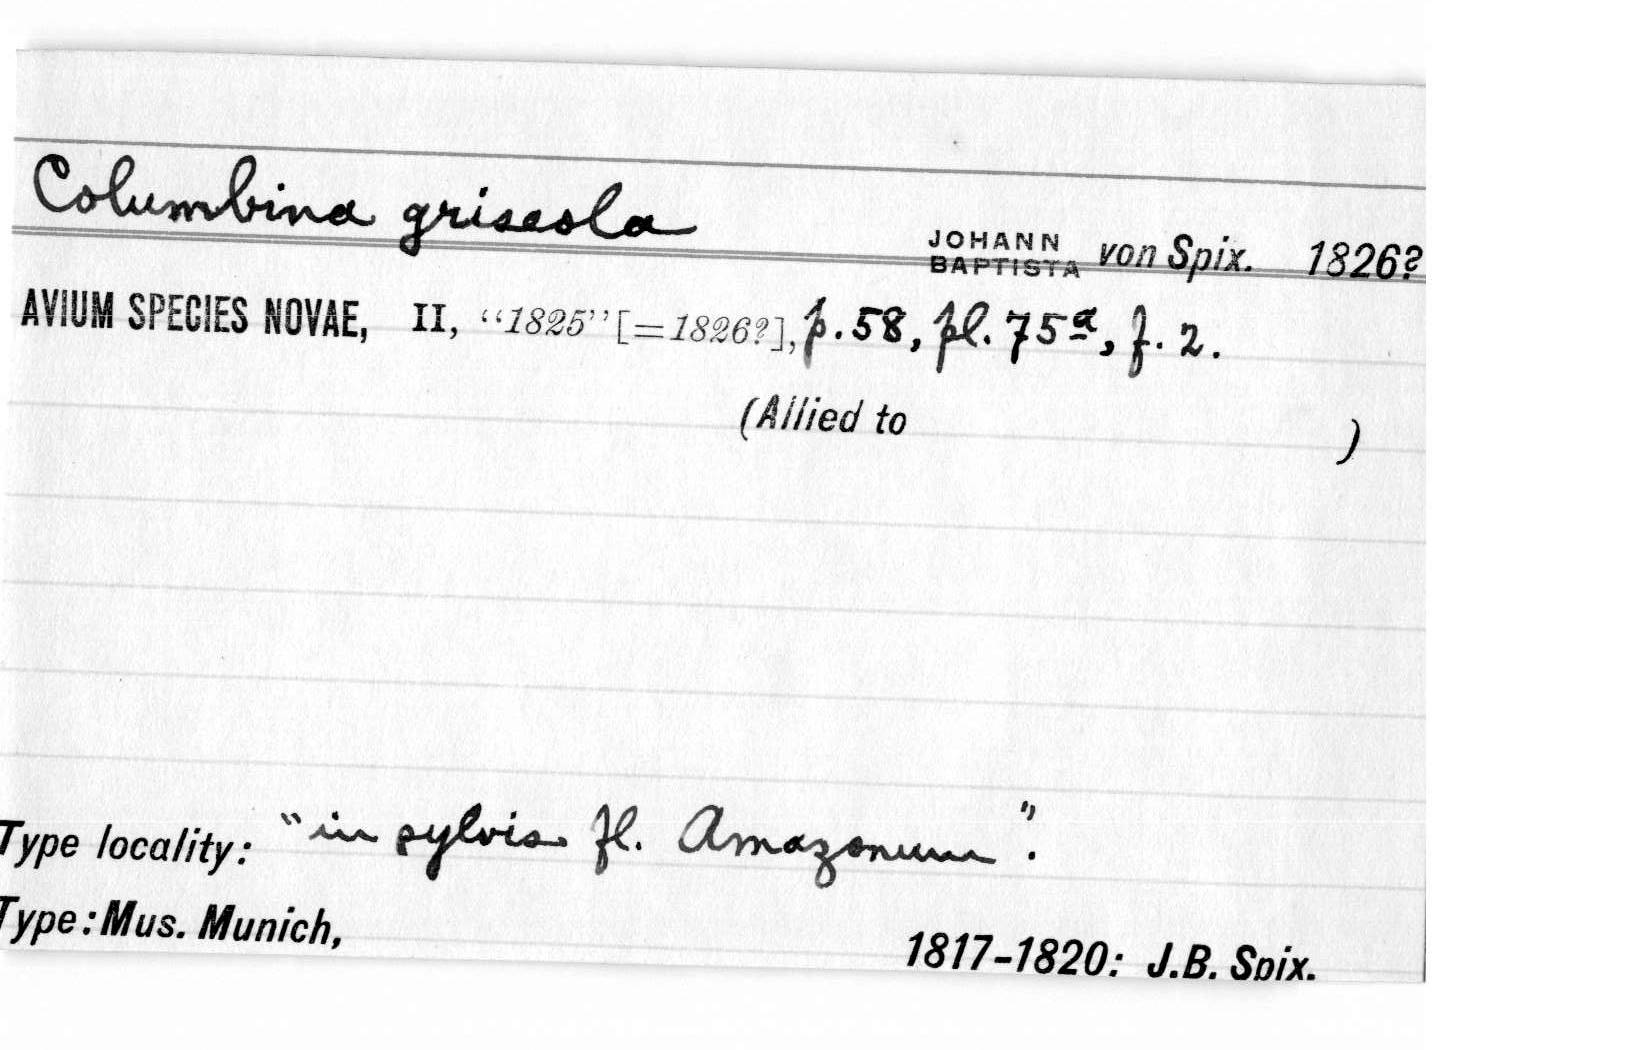 Columbina griseola
JOHANN BAPTISTA von Spix. 1826?
AVIUM SPECIES NOVAE, II, "1825" [=1826?], p. 58, pl. 75ª, f. 2.
(Allied to )
Type locality: "in sylvis fl. Amazonum".
Type: Mus. Munich, 1817-1820: J.B. Spix.